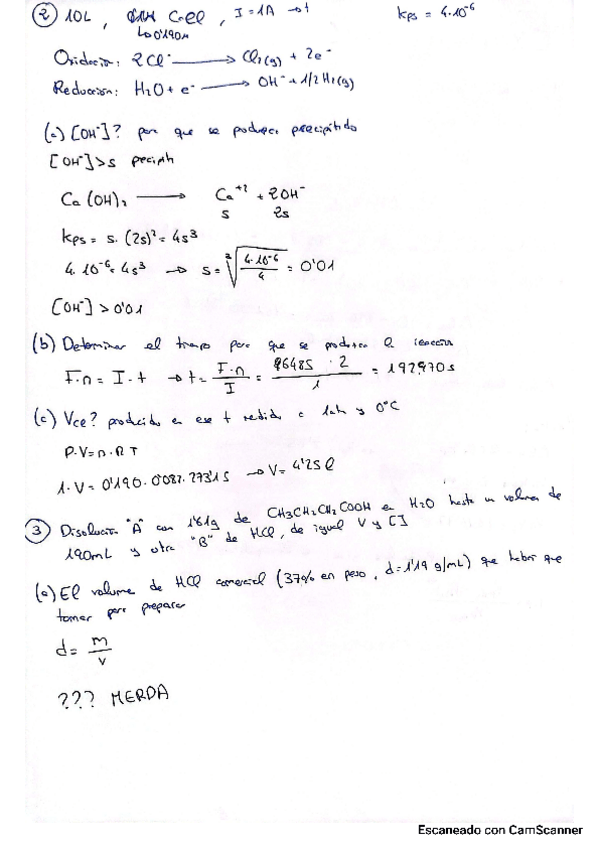 ② 10L, CaCl, I = 1A → t kps = 4·10⁻⁶
↳ 0'190M
Oxidación: 2Cl⁻ → Cl₂(g) + 2e⁻
Reducción: H₂O + e⁻ → OH⁻ + 1/2 H₂(g)
(a) [OH⁻]? para que se produzca precipitado
[OH⁻] > s precipit
Ca(OH)₂ → Ca⁺² + 2OH⁻
s 2s
kps = s · (2s)² = 4s³
4·10⁻⁶ = 4s³ → s = ∛(4·10⁻⁶/4) = 0'01
[OH⁻] > 0'01
(b) Determinar el tiempo para que se produzca la reacción
F·n = I·t → t = F·n/I = 96485 · 2/1 = 192970 s
(c) Vce? producido en ese t medido a 1atm y 0°C
P·V = n·R·T
1·V = 0'190·0'082·273'15 → V = 4'25 l
③ Disolución "A" con 1'61g de CH3CH2CH2COOH en H2O hasta un volumen de
190mL y otra "B" de HCl, de igual V y []
(a) El volumen de HCl comercial (37% en peso, d = 1'19 g/mL) que habrá que
tomar para preparar
d = m/v
??? MERDA
Escaneado con CamScanner